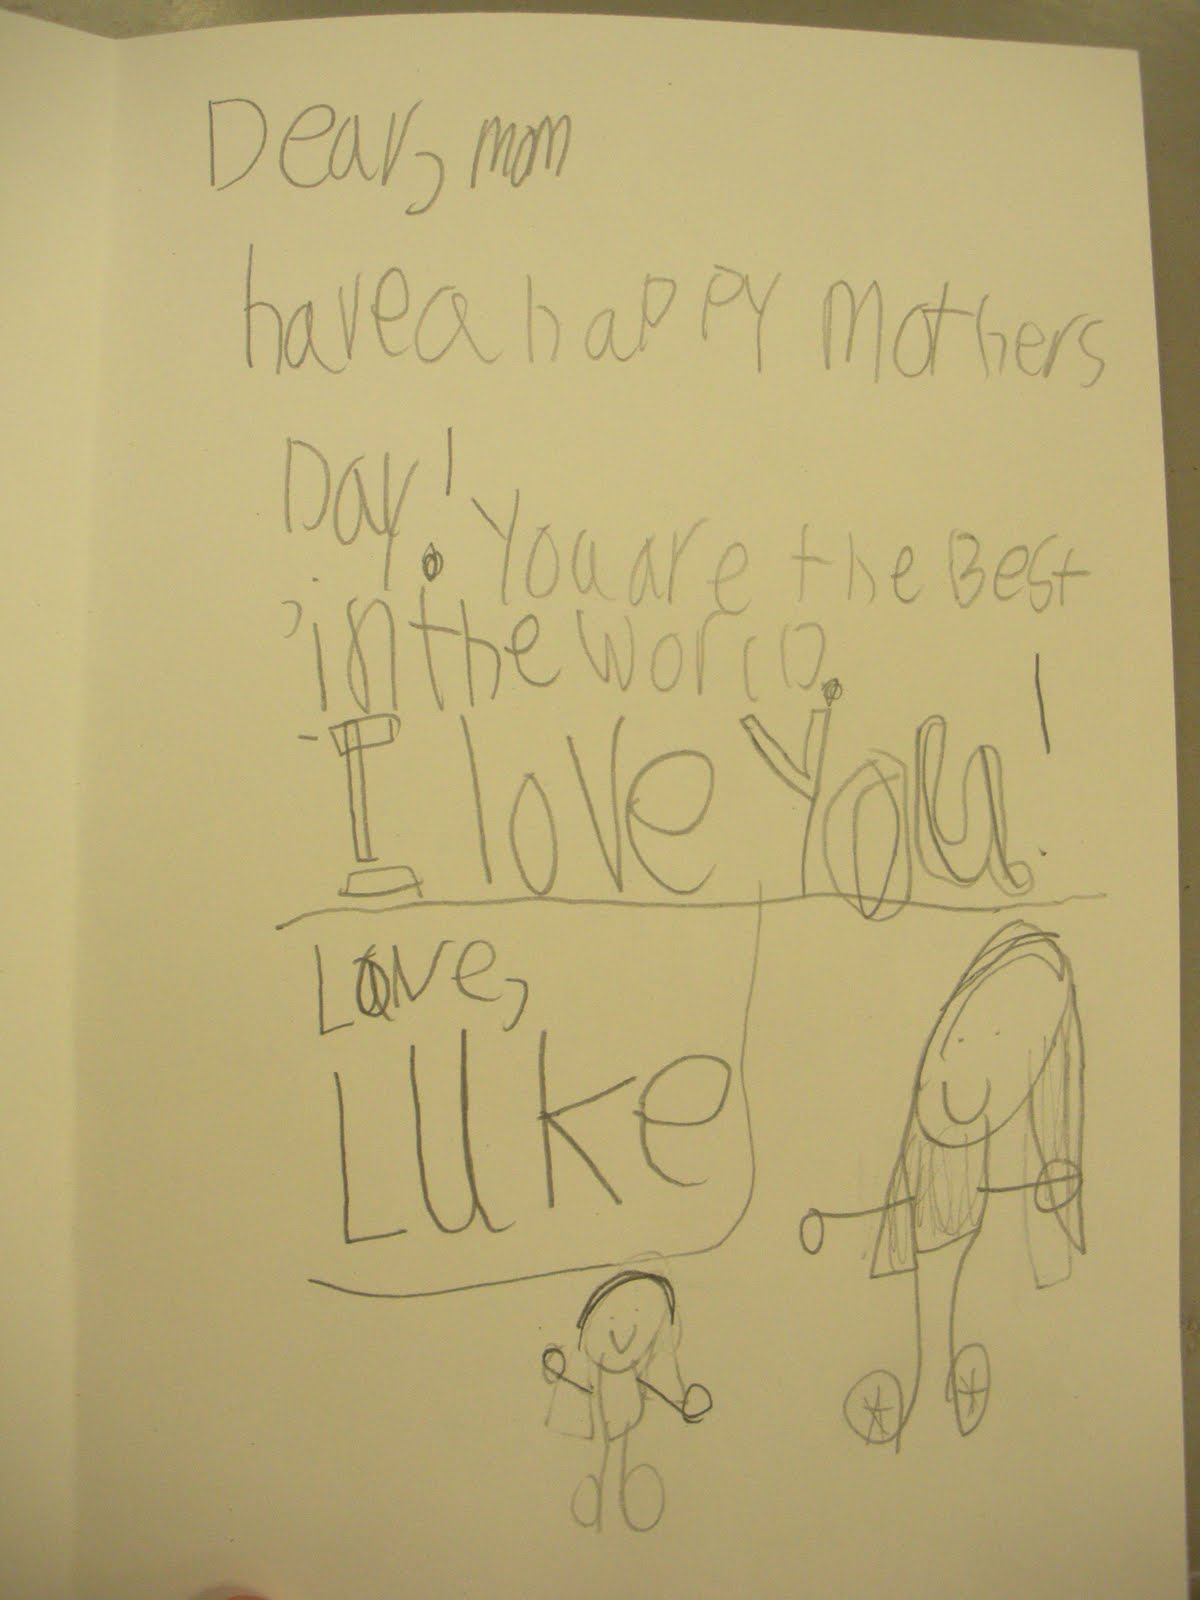 Dear, mom
have a happy Mothers
Day! You are the Best
in the world.
I love You!
Love,
Luke